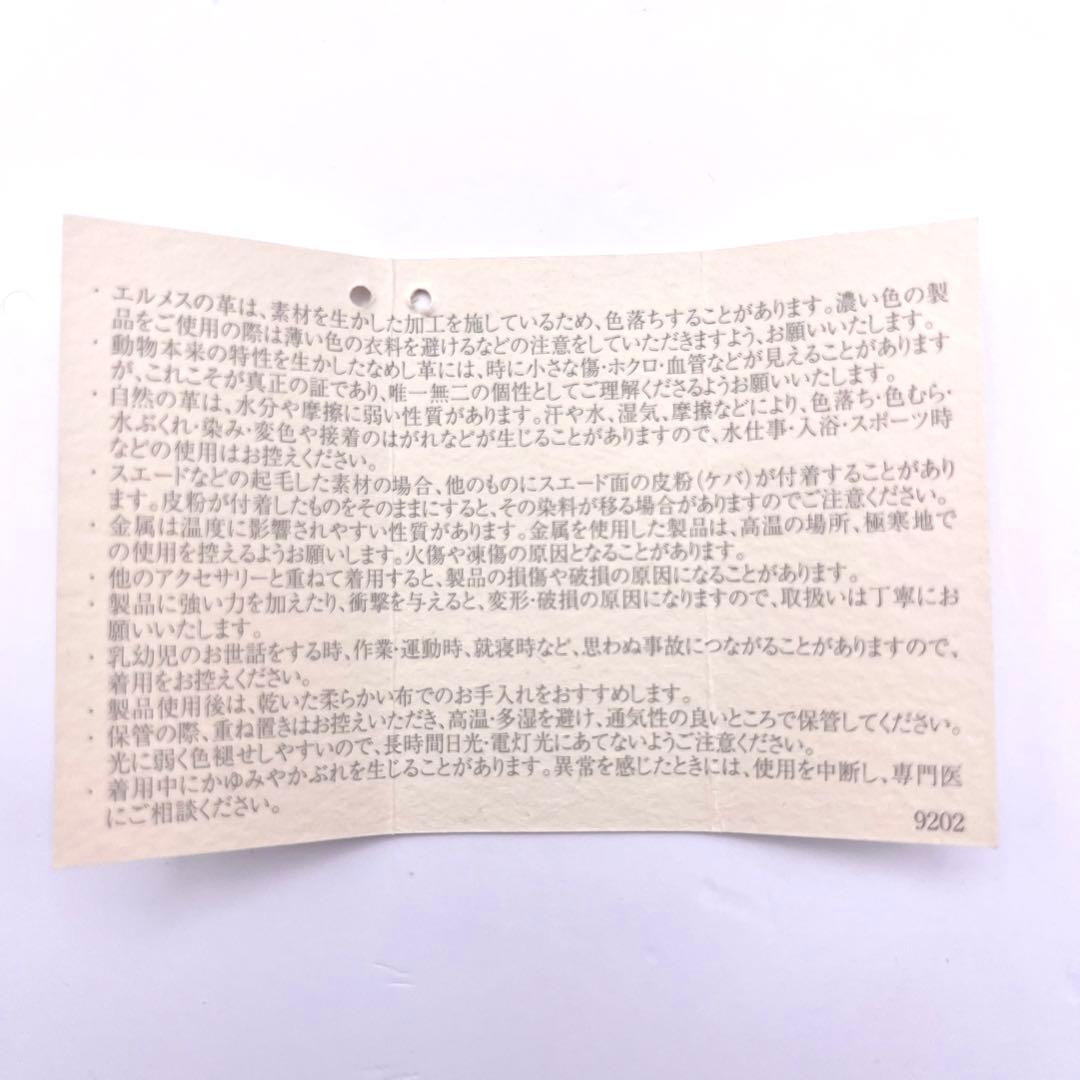 ・ エルメスの革は、素材を生かした加工を施しているため、色落ちすることがあります。濃い色の製
品をご使用の際は薄い色の衣料を避けるなどの注意をしていただきますよう、お願いいたします。
・ 動物本来の特性を生かしたなめし革には、時に小さな傷・ホクロ・血管などが見えることがあります
が、これこそが真正の証であり、唯一無二の個性としてご理解くださるようお願いいたします。
・ 自然の革は、水分や摩擦に弱い性質があります。汗や水、湿気、摩擦などにより、色落ち・色むら・
水ぶくれ・染み・変色や接着のはがれなどが生じることがありますので、水仕事・入浴・スポーツ時
などの使用はお控えください。
・ スエードなどの起毛した素材の場合、他のものにスエード面の皮粉(ケバ)が付着することがあり
ます。皮粉が付着したものをそのままにすると、その染料が移る場合がありますのでご注意ください。
・ 金属は温度に影響されやすい性質があります。金属を使用した製品は、高温の場所、極寒地で
の使用を控えるようお願いします。火傷や凍傷の原因となることがあります。
・ 他のアクセサリーと重ねて着用すると、製品の損傷や破損の原因になることがあります。
・ 製品に強い力を加えたり、衝撃を与えると、変形・破損の原因になりますので、取扱いは丁寧にお
願いいたします。
・ 乳幼児のお世話をする時、作業・運動時、就寝時など、思わぬ事故につながることがありますので、
着用をお控えください。
・ 製品使用後は、乾いた柔らかい布でのお手入れをおすすめします。
・ 保管の際、重ね置きはお控えいただき、高温・多湿を避け、通気性の良いところで保管してください。
光に弱く色褪せしやすいので、長時間日光・電灯光にあてないようご注意ください。
・ 着用中にかゆみやかぶれを生じることがあります。異常を感じたときには、使用を中断し、専門医
にご相談ください。
9202